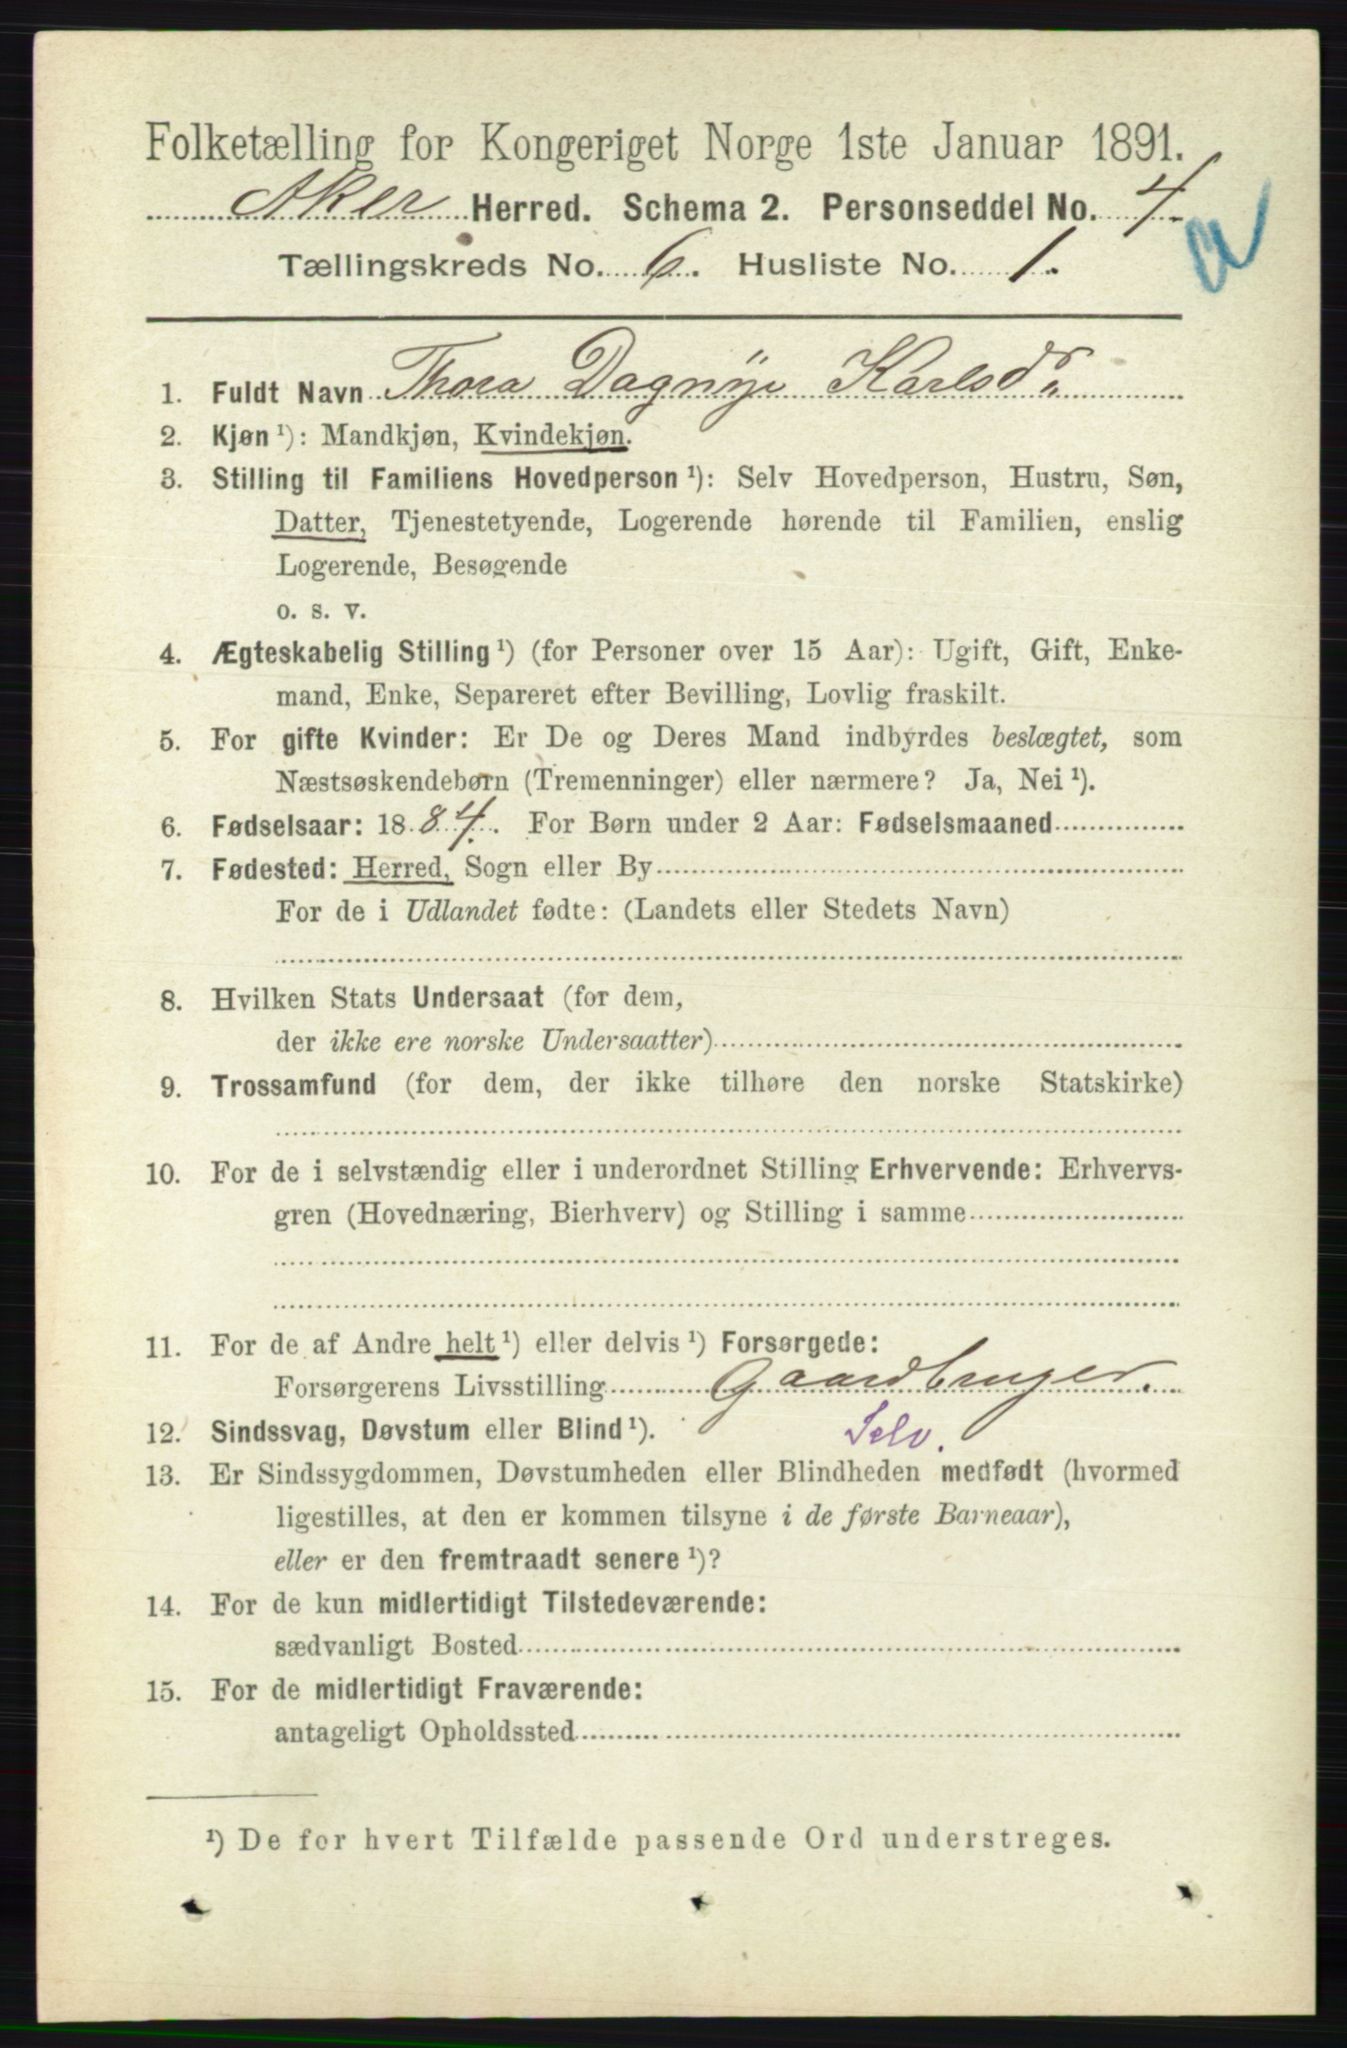 Folketælling for Kongeriget Norge 1ste Januar 1891.
Aker Herred. Schema 2. Personseddel No. 4.
a
Tællingskreds No. 6. Husliste No. 1.
1. Fuldt Navn Thora Dagnije Karlsdr
2. Kjøn ¹): Mandkjøn, Kvindekjøn.
3. Stilling til Familiens Hovedperson ¹): Selv Hovedperson, Hustru, Søn,
Datter, Tjenestetyende, Logerende hørende til Familien, enslig
Logerende, Besøgende
o. s. v.
4. Ægteskabelig Stilling ¹) (for Personer over 15 Aar): Ugift, Gift, Enke-
mand, Enke, Separeret efter Bevilling, Lovlig fraskilt.
5. For gifte Kvinder: Er De og Deres Mand indbyrdes beslægtet, som
Næstsøskendebørn (Tremenninger) eller nærmere? Ja, Nei ¹).
6. Fødselsaar: 1884. For Børn under 2 Aar: Fødselsmaaned
7. Fødested: Herred, Sogn eller By
For de i Udlandet fødte: (Landets eller Stedets Navn)
8. Hvilken Stats Undersaat (for dem,
der ikke ere norske Undersaatter)
9. Trossamfund (for dem, der ikke tilhøre den norske Statskirke)
10. For de i selvstændig eller i underordnet Stilling Erhvervende: Erhvervs-
gren (Hovednæring, Bierhverv) og Stilling i samme
11. For de af Andre helt ¹) eller delvis ¹) Forsørgede:
Forsørgerens Livsstilling Gaardbruger.
12. Sindssvag, Døvstum eller Blind ¹). Selv.
13. Er Sindssygdommen, Døvstumheden eller Blindheden medfødt (hvormed
ligestilles, at den er kommen tilsyne i de første Barneaar),
eller er den fremtraadt senere ¹)?
14. For de kun midlertidigt Tilstedeværende:
sædvanligt Bosted
15. For de midlertidigt Fraværende:
antageligt Opholdssted
¹) De for hvert Tilfælde passende Ord understreges.